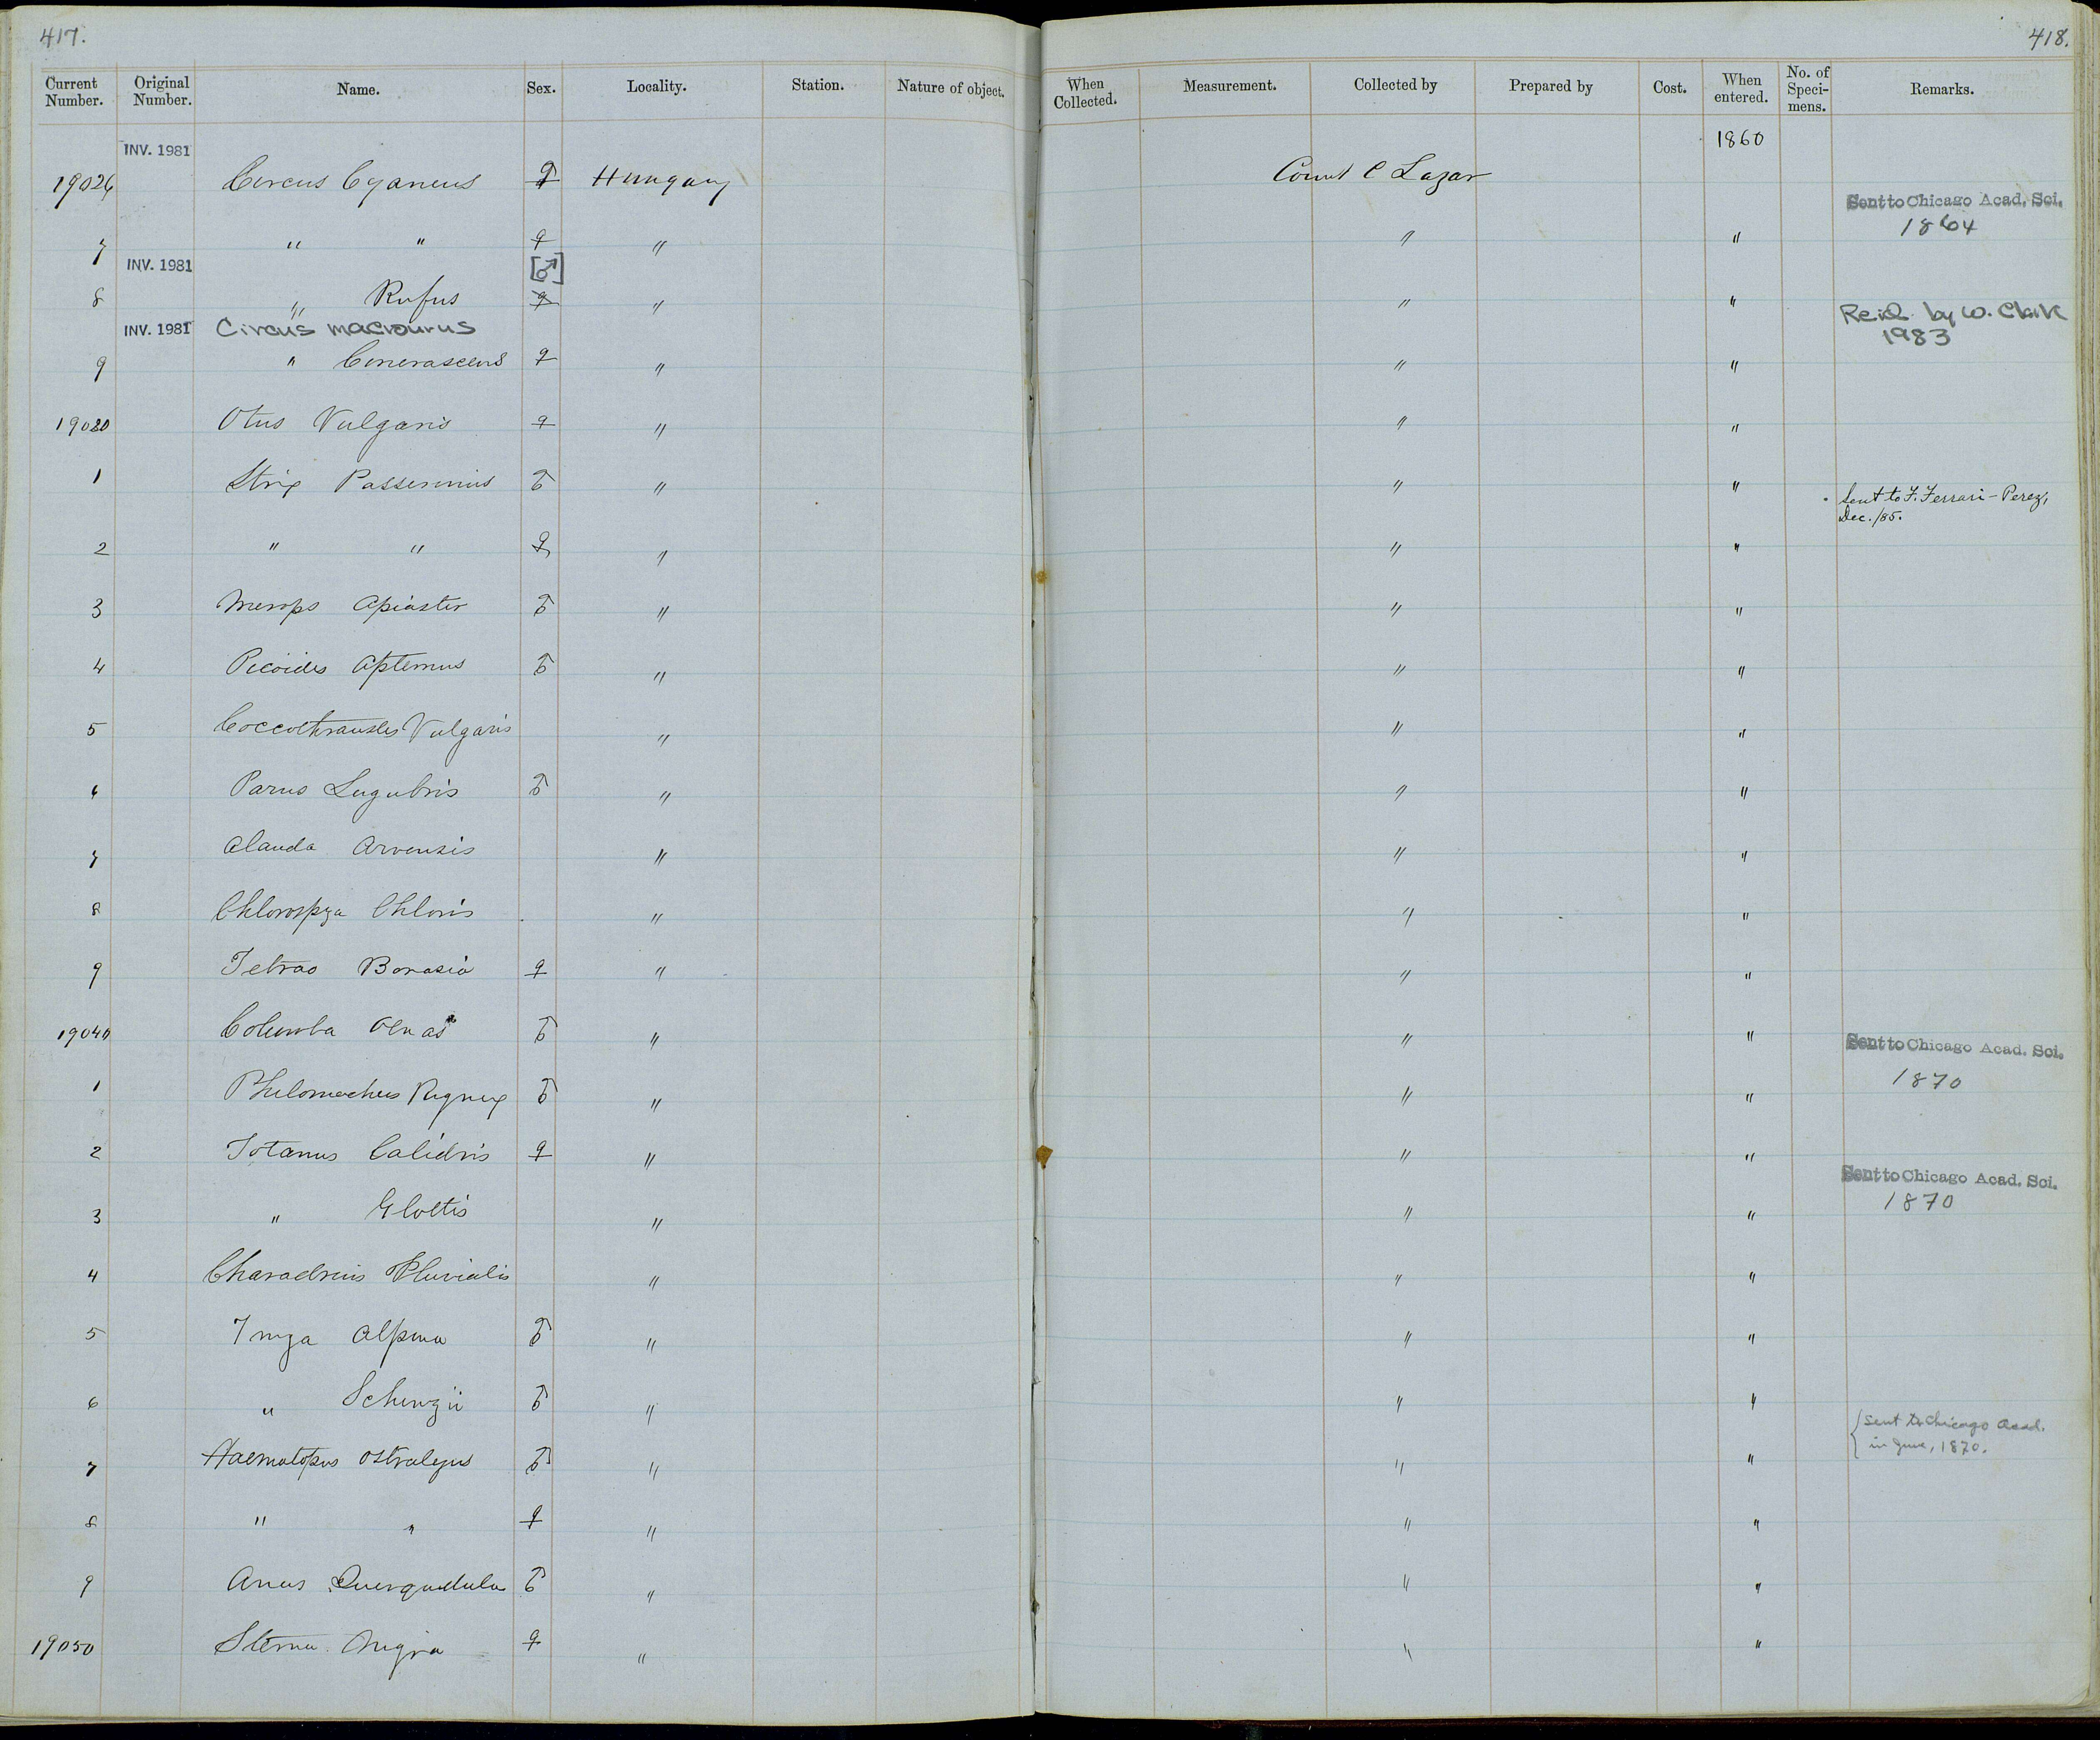 417.
418.
Current Number. Original Number. Name. Sex. Locality. Station. Nature of object. When Collected. Measurement. Collected by Prepared by Cost. When entered. No. of Speci-mens. Remarks.
1860
INV. 1981
19026 Circus Cyaneus ♀ Hungary Count C Lazar
Sent to Chicago Acad. Sci.
1864
7 " " ♀ " " "
INV. 1981 [♂]
8 " Rufus ♀ " " "
Reid. by W. Clark
1983
INV. 1981 Circus macrourus
9 " Cinerascens ♀ " " "
19030 Otus Vulgaris ♀ " " "
1 Strix Passerinus ♂ " " "
Sent to F. Ferrari-Perez,
Dec./85.
2 " " ♀ " " "
3 Merops Apiaster ♂ " " "
4 Picoides Apternus ♂ " " "
5 Coccothraustes Vulgaris " " "
6 Parus Lugubris ♂ " " "
7 Alauda Arvensis " " "
8 Chlorospza Chloris " " "
9 Tetrao Bonasia ♀ " " "
19040 Columba Oenas ♂ " " "
Sent to Chicago Acad. Sci.
1870
1 Philomachus Pugnex ♂ " " "
2 Totanus Calidris ♀ " " "
Sent to Chicago Acad. Sci.
1870
3 " Glottis " " "
4 Charadrius Pluvialis " " "
5 Tringa Alpina ♂ " " "
6 " Schinzii ♂ " " "
{ Sent to Chicago Acad.
in June, 1870.
7 Haematopus Ostralegus ♂ " " "
8 " " ♀ " " "
9 Anas Querquedula ♂ " " "
19050 Sterna Nigra ♀ " " "